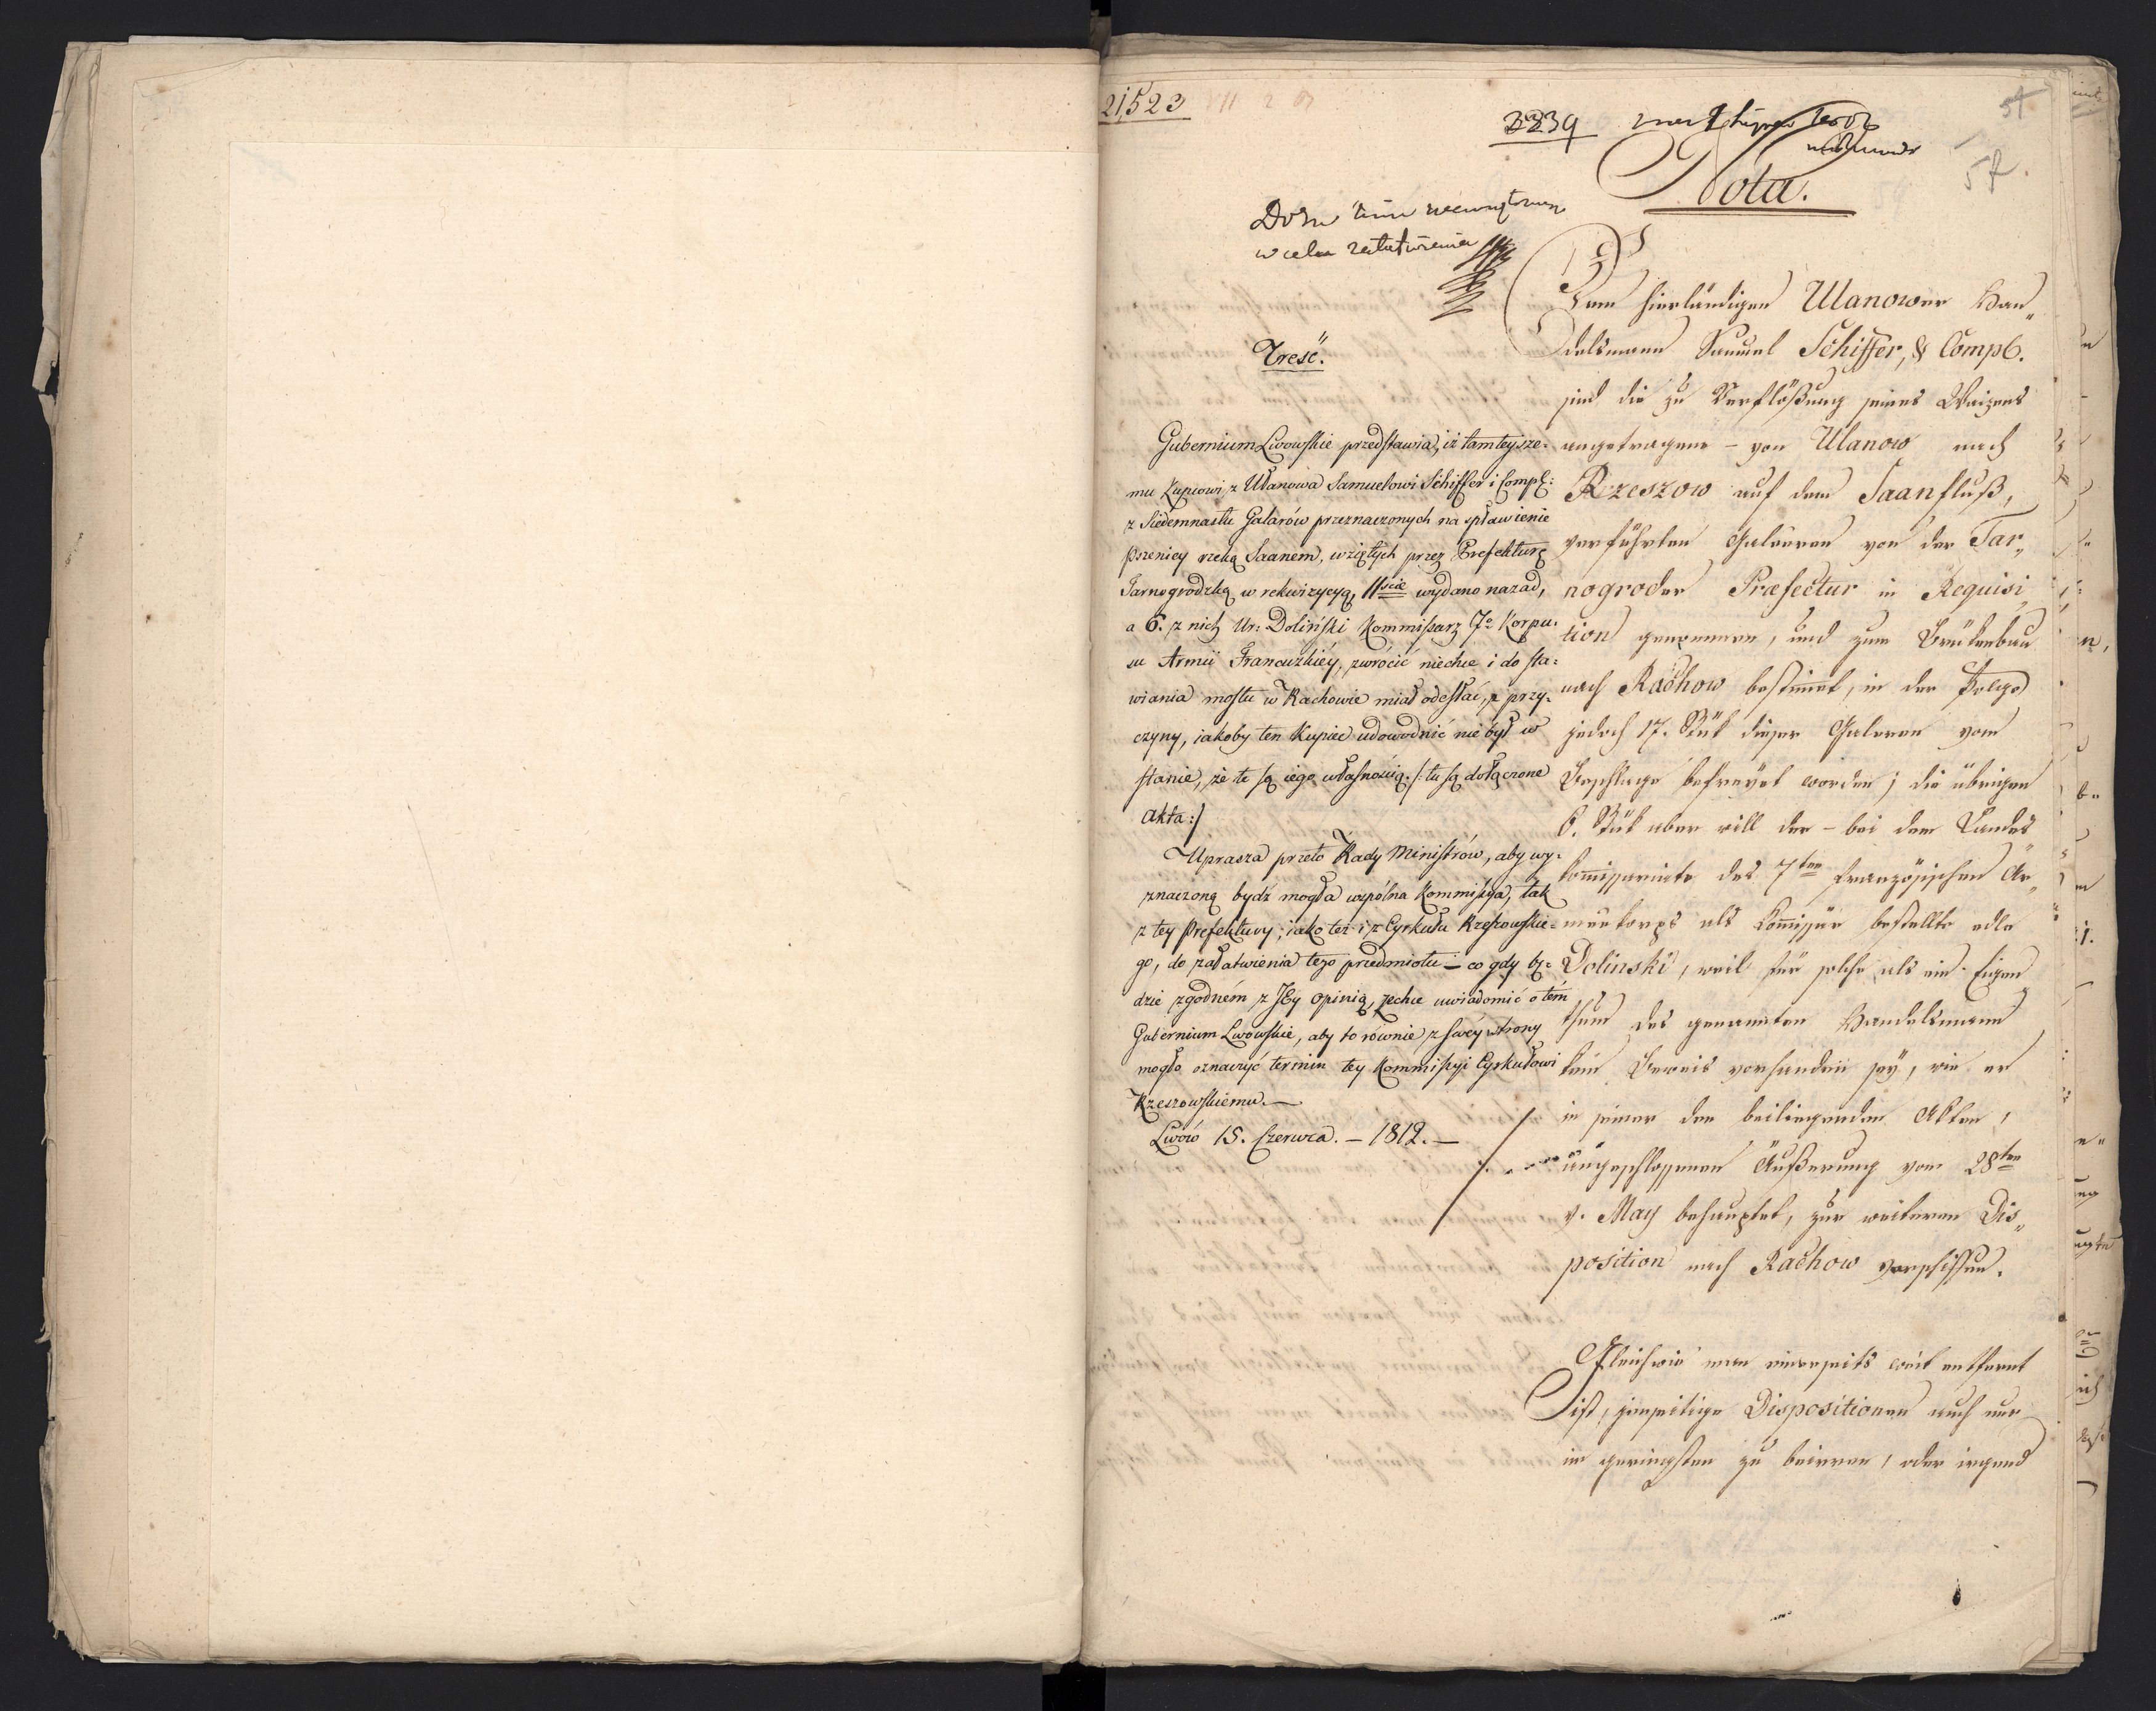 21,523
3839
57.
Nota.
w celu załatwienia
Treść.
Gubernium Lwowskie przedstawia, iż tamteysze-
mu Kupcowi z Ulanowa Samuelowi Schiffer i Comp:
z Siedemnastu Galarów przeznaczonych na spławienie
Pszenicy rzeką Saanem, wziętych przez Prefekturę
Tarnogrodzką w rekwizycyą, 11ście wydano nazad,
a 6. z nich Ur: Doliński Kommissarz 7o Korpu-
su Armii Francuzkiéy, zwrócić niechce i do sta-
wiania mostu w Rachowie miał odesłać, z przy-
czyny, iakoby ten Kupiec udowodnić nie był w
stanie, że te są iego własnością. /: tu są dołączone
akta :/
Uprasza przeto Rady Ministrów, aby wy-
znaczoną bydź mogła wspólna Kommissya, tak
z tey Prefektury, iako też i z Cyrkułu Rzeszowskie-
go, do załatwienia tego przedmiotu – co gdy bę-
dzie zgodném z Jéy opinią, zechce uwiadomić o tém
Gubernium Lwowskie, aby to równie z swéy strony
mogło oznaczyć termin tey Kommissyi Cyrkułowi
Rzeszowskiemu. –
Lwów 15. Czerwca. – 1812. –
Dem hierländigen Ulanower Han„
delsmann Samuel Schiffer, & Comp.
sind die zu Verflößung seines Waizens
angetragene – von Ulanow nach
Rzeszow auf dem Saanfluß,
verführten Galeeren von der Tar„
nogroder Præfectur in Requisi„
tion genommen, und zum Brükenbau
nach Rachow bestimmt, in der Folge
jedoch 17. Stük dieser Galeren vom
Beschlage befreyet worden; die übrigen
6. Stük aber will der – bei dem Landes
Kommissariate des 7ten französischen Ar„
meekorps als Kommissär bestellte edle
Dolinski, weil für solche als ein Eigen„
thum des genannten Handelsmann
kein Beweis vorhanden sey, wie er
in seiner den beiliegenden Akten,
angeschlossenen Äußerung vom 28ten
v. May behauptet, zur weiteren Dis„
position nach Rachow verschiffen.
Gleichwie man einerseits weit entfernt
ist, jenseitige Dispositionen auch nur
im geringsten zu beirren, oder irgend